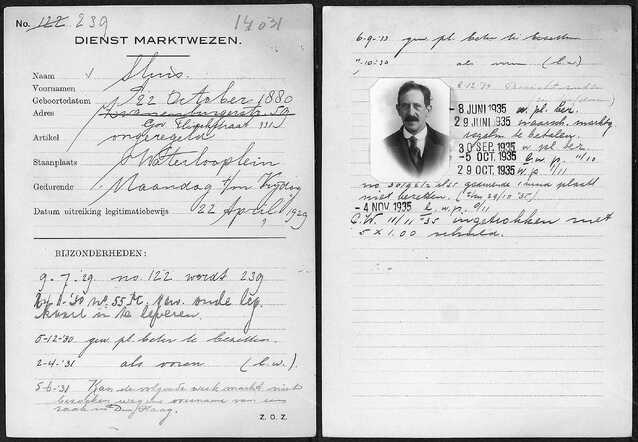 No. 122 239
14031
DIENST MARKTWEZEN.
Naam Sluis.
Voornamen
Geboortedatum 22 October 1880
Adres 59
Govert Flinckstraat 331
Artikel ongeregeld
Staanplaats Waterlooplein
Gedurende Maandag t/m Vrijdag
Datum uitreiking legitimatiebewijs 22 April 1929
BIJZONDERHEDEN:
9-7-29 no. 122 wordt 239
no. 55 gew. oude leg.
kaart in te leveren.
5-12-'30 gew. pl. beter te bezetten.
2-4-'31 als voren (b.w.)
5-6-'31 Kan de volgende week markt niet
bezoeken wegens overname van een
zaak in Den Haag.
Z. O. Z.
6-9-'33 gew. pl. beter te bezetten
-10-30 als voren (b.w.)
- 8 JUNI 1935 w. pl. ber.
29 JUNI 1935 waarsch. marktg.
regelm. te betalen.
30 SEP. 1935 w. pl. ber.
- 5 OCT. 1935 b.w.p. 10
29 OCT. 1935 w.p. /11
niet bezetten. (29/10 '35)
- 4 NOV. 1935 b.w.p. /11
C.W. 11/11 '35 ingetrokken met
5 x 1.00 schuld.